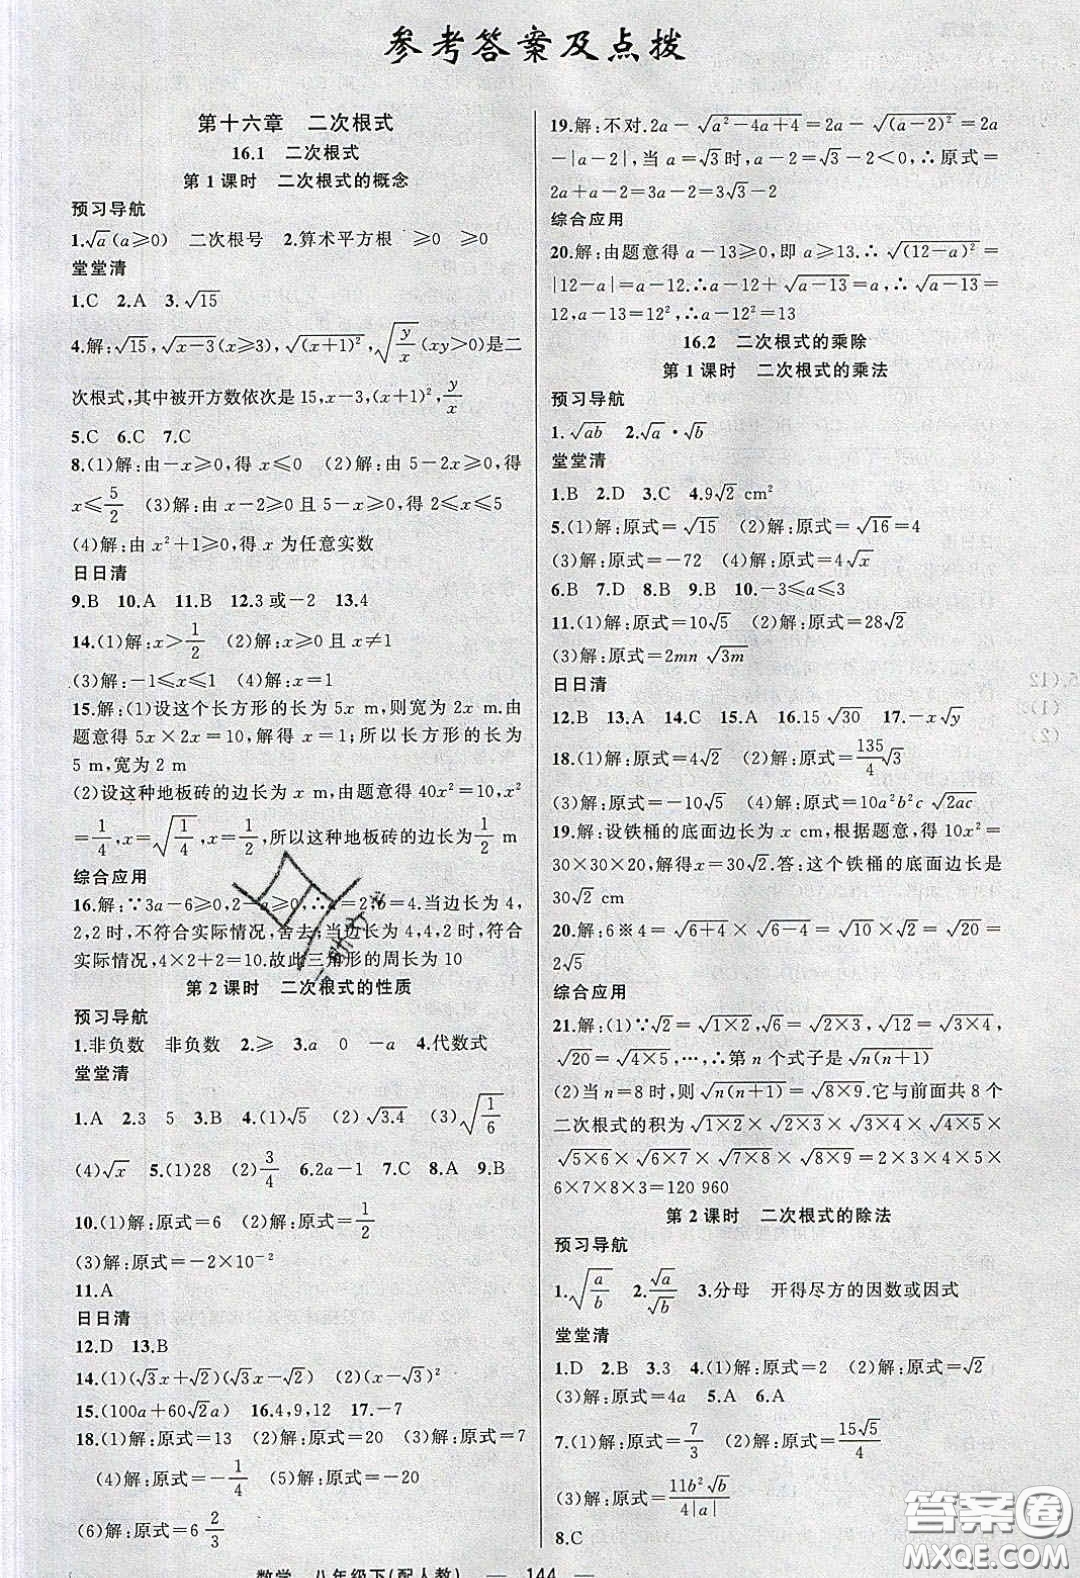 参考答案及点拨
第十六章 二次根式
16.1 二次根式
第1课时 二次根式的概念
预习导航
1.√a(a≥0) 二次根号 2.算术平方根 ≥0 ≥0
堂堂清
1.C 2.A 3.√15
4.解:√15,√(x-3)(x≥3),√((x+1)²),√(y/x)(xy>0)是二
次根式,其中被开方数依次是15,x-3,(x+1)²,y/x
5.C 6.C 7.C
8.(1)解:由-x≥0,得 x≤0 (2)解:由 5-2x≥0,得
x≤5/2 (3)解:由 x-2≥0 且 5-x≥0,得 2≤x≤5
(4)解:由 x²+1≥0,得 x 为任意实数
日日清
9.B 10.A 11.B 12.3或-2 13.4
14.(1)解:x>1/2 (2)解:x≥0 且 x≠1
(3)解:-1≤x≤1 (4)解:x=1
15.解:(1)设这个长方形的长为 5x m,则宽为 2x m.由
题意得 5x×2x=10,解得 x=1;所以长方形的长为
5 m,宽为 2 m
(2)设这种地板砖的边长为 x m,由题意得 40x²=10,x²
=1/4,x=√(1/4),x=1/2,所以这种地板砖的边长为1/2 m
综合应用
16.解:∵3a-6≥0,2-a≥0,∴a=2,b=4.当边长为 4,
2,2 时,不符合实际情况,舍去;当边长为 4,4,2 时,符合
实际情况,4×2+2=10.故此三角形的周长为 10
第2课时 二次根式的性质
预习导航
1.非负数 非负数 2.≥ 3.a 0 -a 4.代数式
堂堂清
1.A 2.3 5 3.B 4.(1)√5 (2)√3.4 (3)√(1/6)
(4)√x 5.(1)28 (2)3/4 6.2a-1 7.C 8.A 9.B
10.(1)解:原式=6 (2)解:原式=1/2
(3)解:原式=-2×10⁻²
11.A
日日清
12.D 13.B
14.(1)(√3x+√2)(√3x-√2) (2)(x-√2)²
15.(100a+60√2a) 16.4,9,12 17.-7
18.(1)解:原式=13 (2)解:原式=20 (3)解:原式=7
(4)解:原式=-1/4 (5)解:原式=-20
(6)解:原式=6 2/3
19.解:不对.2a-√(a²-4a+4)=2a-√((a-2)²)=2a
-|a-2|,当 a=√3时,a-2=√3-2<0,∴原式=
2a+a-2=3a-2=3√3-2
综合应用
20.解:由题意得 a-13≥0,即 a≥13.∴√((12-a)²)=
|12-a|=a-12.∴a-12+√(a-13)=a,∴√(a-13)=
12,a-13=12²,∴a-12²=13
16.2 二次根式的乘除
第1课时 二次根式的乘法
预习导航
1.√ab 2.√a·√b
堂堂清
1.B 2.D 3.C 4.9√2 cm²
5.(1)解:原式=√15 (2)解:原式=√16=4
(3)解:原式=-72 (4)解:原式=4√x
6.B 7.D 8.B 9.B 10.-3≤a≤3
11.(1)解:原式=10√5 (2)解:原式=28√2
(3)解:原式=2mn√3m
日日清
12.B 13.A 14.C 15.A 16.15√30 17.-x√y
18.(1)解:原式=4√2 (2)解:原式=135/4√3
(3)解:原式=-10√5 (4)解:原式=10a²b²c√2ac
19.解:设铁桶的底面边长为 x cm,根据题意,得 10x²=
30×30×20,解得 x=30√2.答:这个铁桶的底面边长是
30√2 cm
20.解:6※4=√(6+4)×√(6-4)=√10×√2=√20=
2√5
综合应用
21.解:(1)∵√2=√(1×2),√6=√(2×3),√12=√(3×4),
√20=√(4×5),…,∴第 n 个式子是√(n(n+1))
(2)当 n=8 时,则√(n(n+1))=√(8×9).它与前面共 8 个
二次根式的积为√(1×2)×√(2×3)×√(3×4)×√(4×5)×
√(5×6)×√(6×7)×√(7×8)×√(8×9)=2×3×4×5×
6×7×8×3=120 960
第2课时 二次根式的除法
预习导航
1.√(a/b) 2.√a/√b 3.分母 开得尽方的因数或因式
堂堂清
1.D 2.B 3.3 4.(1)解:原式=2 (2)解:原式=√2
(3)解:原式=4a 5.A 6.A
7.(1)解:原式=7/3 (2)解:原式=15√5/4
(3)解:原式=11b²√b/4|a|
8.C
数学 八年级下(配人教) — 144 —
答案圈
MXQE.COM